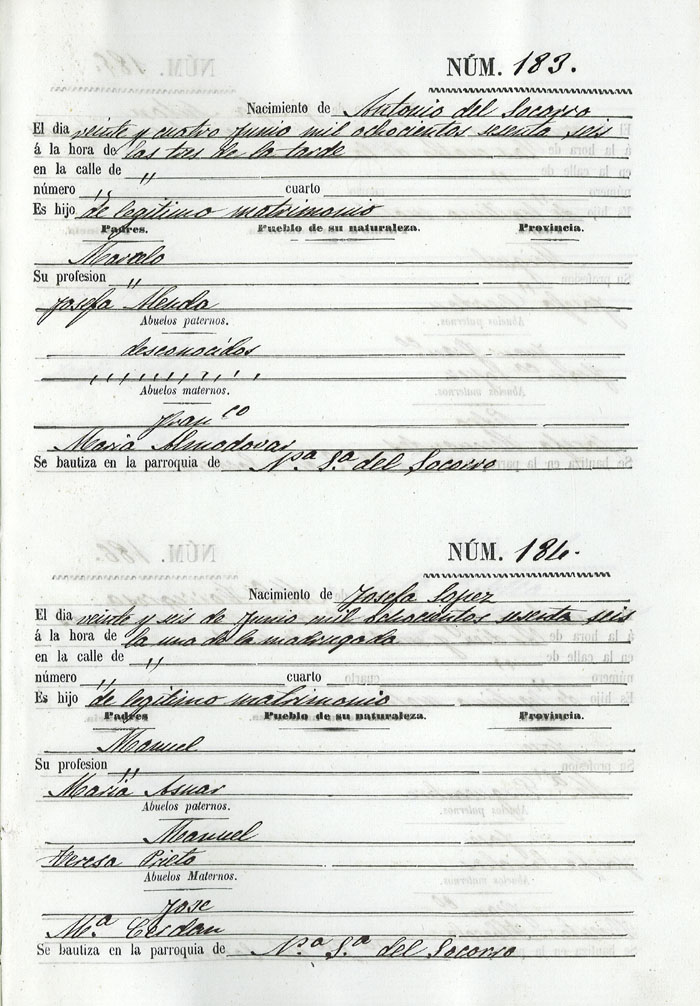 NÚM. 183.
Nacimiento de Antonio del Socorro
El dia veinte y cuatro Junio mil ochocientos sesenta seis
á la hora de las tres de la tarde
en la calle de "
número " cuarto
Es hijo de legitimo matrimonio
Padres. Pueblo de su naturaleza. Provincia.
Marcelo
Su profesion "
Josefa
Abuelos paternos.
desconocidos
" " " " " " " "
Abuelos maternos.
Fran.co
Maria Almodovar
Se bautiza en la parroquia de N.ª S.ª del Socorro
NÚM. 184.
Nacimiento de Josefa Lopez
El dia veinte y seis de Junio mil ochocientos sesenta seis
á la hora de la una de la madrugada
en la calle de "
número " cuarto
Es hijo de legitimo matrimonio
Padres Pueblo de su naturaleza. Provincia.
Manuel
Su profesion "
Maria Asnar
Abuelos paternos.
Manuel
Teresa Prieto
Abuelos Maternos.
Jose
M.ª Cerdan
Se bautiza en la parroquia de N.ª S.ª del Socorro